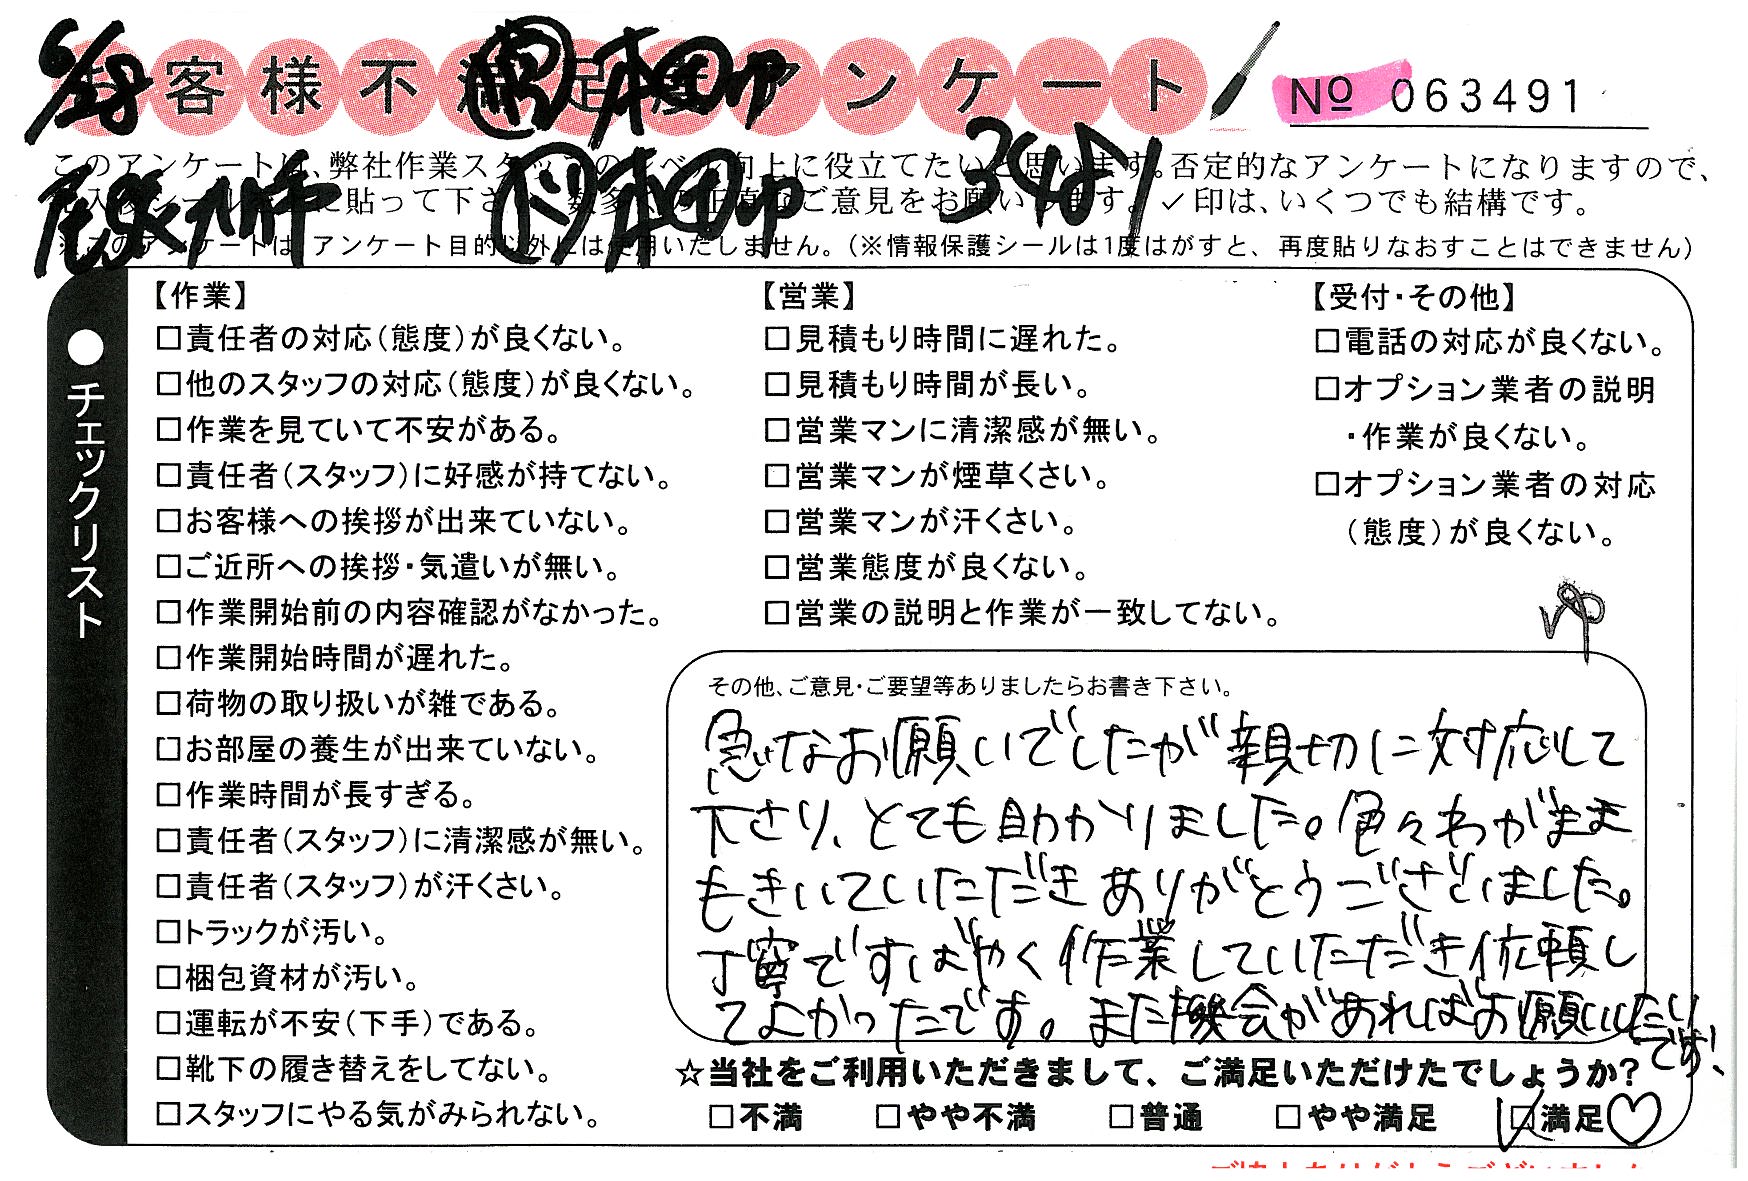 6/28
お客様不満足度アンケート
No 063491
このアンケートは、弊社作業スタッフのレベル向上に役立てたいと思います。否定的なアンケートになりますので、
に貼って下さ ご意見をお願いします。✓印は、いくつでも結構です。
※このアンケートは、アンケート目的以外には使用いたしません。（※情報保護シールは1度はがすと、再度貼りなおすことはできません）
●チェックリスト
【作業】
□責任者の対応（態度）が良くない。
□他のスタッフの対応（態度）が良くない。
□作業を見ていて不安がある。
□責任者（スタッフ）に好感が持てない。
□お客様への挨拶が出来ていない。
□ご近所への挨拶・気遣いが無い。
□作業開始前の内容確認がなかった。
□作業開始時間が遅れた。
□荷物の取り扱いが雑である。
□お部屋の養生が出来ていない。
□作業時間が長すぎる。
□責任者（スタッフ）に清潔感が無い。
□責任者（スタッフ）が汗くさい。
□トラックが汚い。
□梱包資材が汚い。
□運転が不安（下手）である。
□靴下の履き替えをしてない。
□スタッフにやる気がみられない。
【営業】
□見積もり時間に遅れた。
□見積もり時間が長い。
□営業マンに清潔感が無い。
□営業マンが煙草くさい。
□営業マンが汗くさい。
□営業態度が良くない。
□営業の説明と作業が一致してない。
【受付・その他】
□電話の対応が良くない。
□オプション業者の説明
・作業が良くない。
□オプション業者の対応
（態度）が良くない。
その他、ご意見・ご要望等ありましたらお書き下さい。
急なお願いでしたが親切に対応して
下さり、とても助かりました。色々わがまま
もきいていただきありがとうございました。
丁寧ですばやく作業していただき依頼し
てよかったです。また機会があればお願いしたい
です!
☆当社をご利用いただきまして、ご満足いただけたでしょうか?
□不満 □やや不満 □普通 □やや満足 ☑満足♡